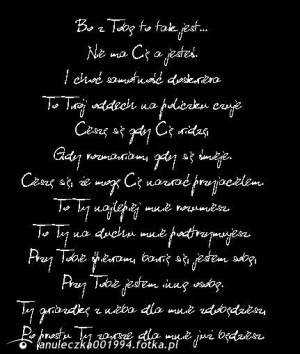 Bo z Tobą to tak jest...
Nie ma Cię a jesteś.
I choć samotność doskwiera
To Twój oddech na policzku czuję
Cieszę się gdy Cię widzę,
Gdy rozmawiam, gdy się śmieję.
Cieszę się, że mogę Cię nazwać przyjacielem.
To Ty najlepiej mnie rozumiesz
To Ty na duchu mnie podtrzymujesz
Przy Tobie śpiewam, bawię się, jestem sobą,
Przy Tobie jestem inną osobą.
Ty gwiazdkę z nieba dla mnie zdobędziesz,
Po prostu Ty zawsze dla mnie już będziesz
anuleczka001994.fotka.pl